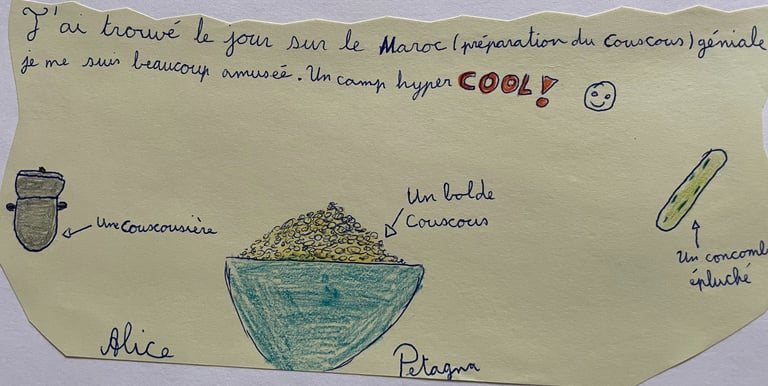 J'ai trouvé le jour sur le Maroc (préparation du Couscous) géniale
je me suis beaucoup amuséé. Un camp hyper COOL!
Une couscousière
Un bol de
Couscous
Un concomb
épluché
Alice
Petagna